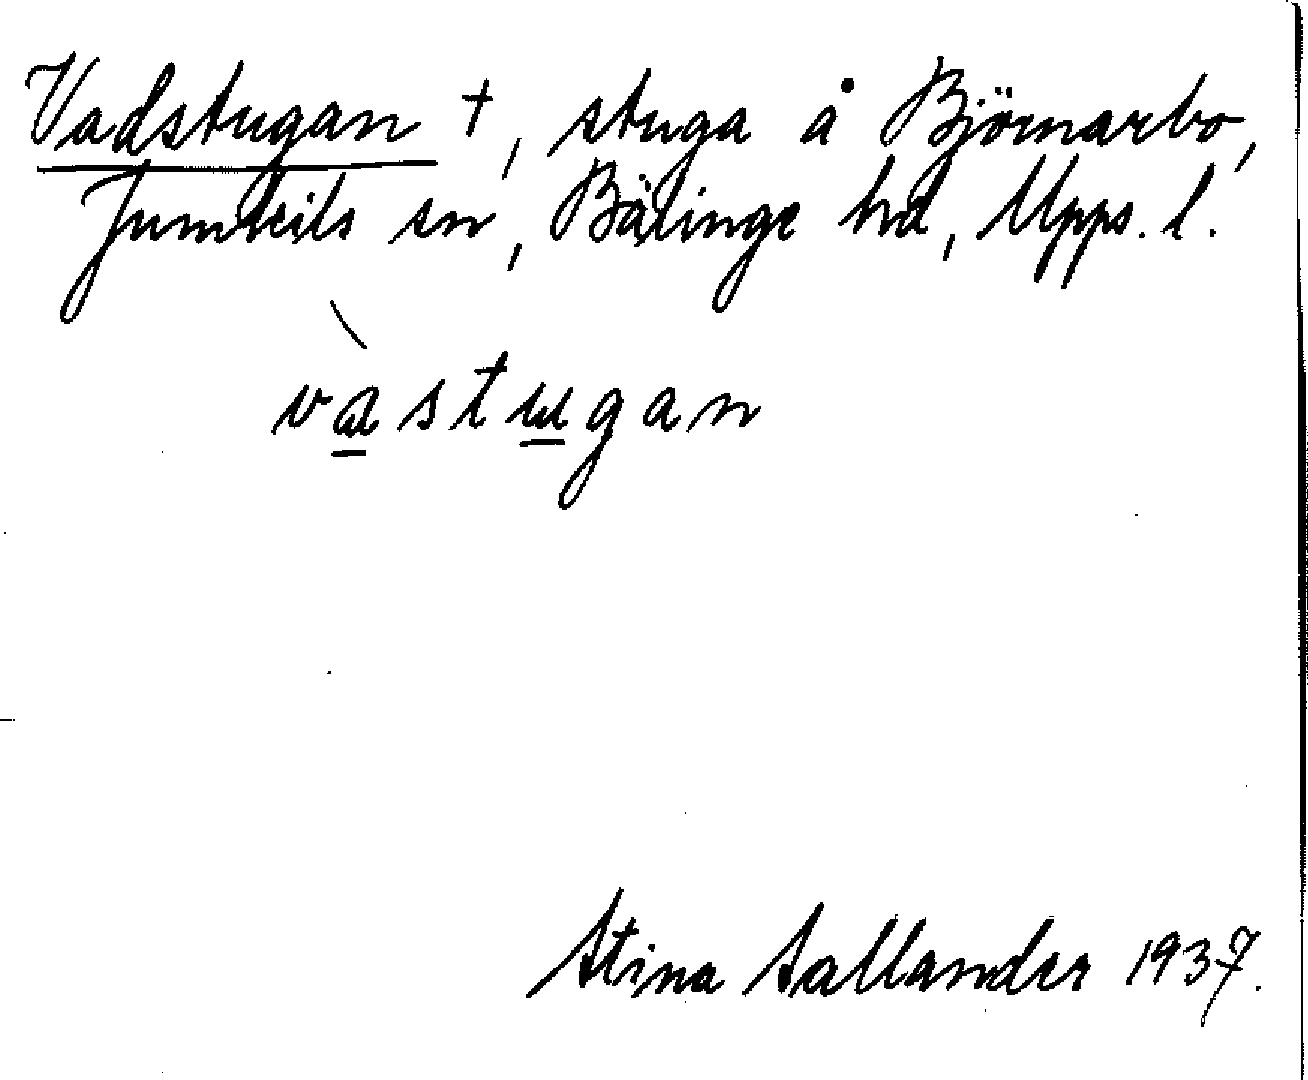 Vadstugan †, stuga å Björnarbo,
Jumkils sn, Bälinge hd, Upps. l.
vastugan
Stina Sallander 1937.